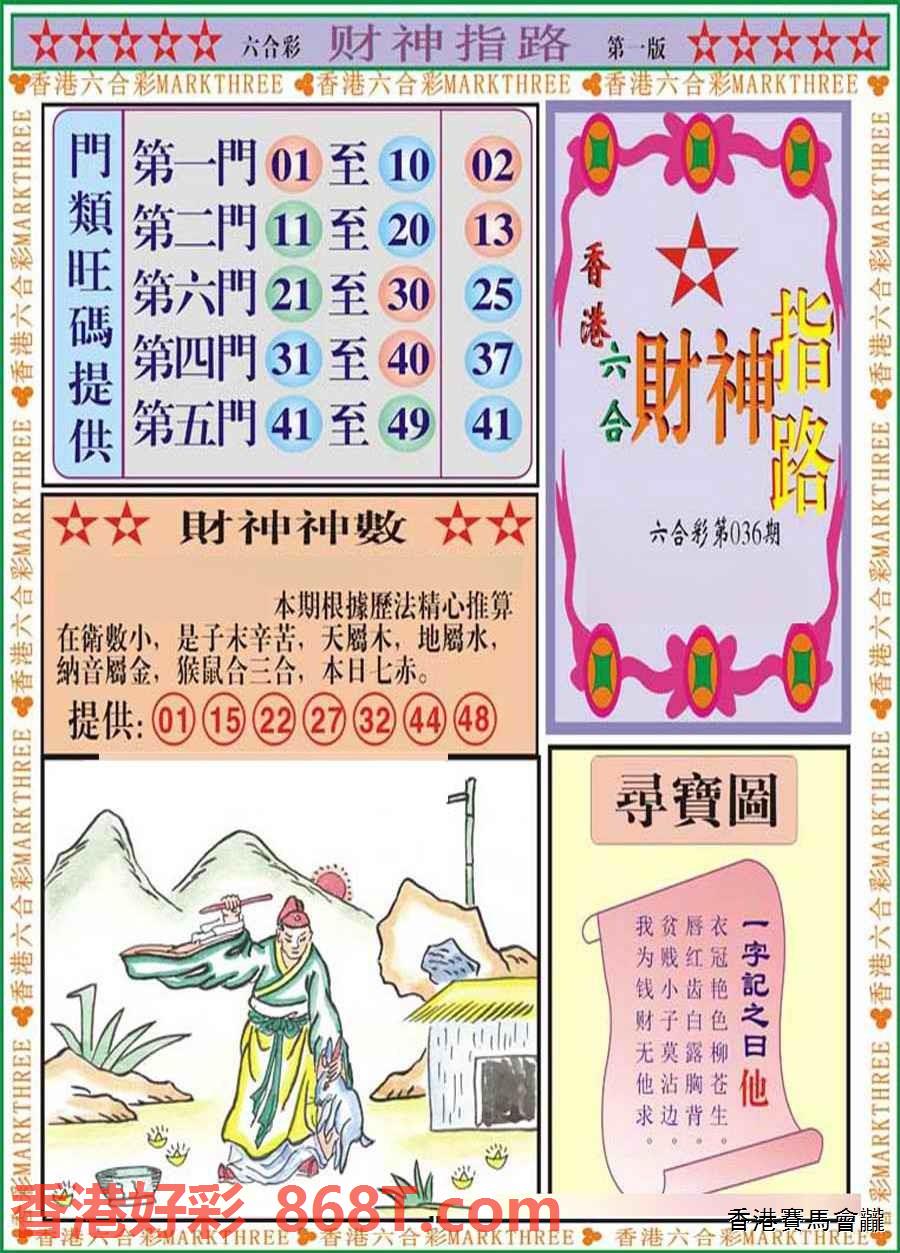 六合彩 财神指路 第一版
香港六合彩MARKTHREE 香港六合彩MARKTHREE 香港六合彩MARKTHREE
門類旺碼提供
第一門 01 至 10 02
第二門 11 至 20 13
第六門 21 至 30 25
第四門 31 至 40 37
第五門 41 至 49 41
香港六合
財神指路
六合彩第036期
財神神數
本期根據歷法精心推算
在衛數小，是子末辛苦，天屬木，地屬水，
納音屬金，猴鼠合三合，本日七赤。
提供: 01 15 22 27 32 44 48
尋寶圖
一字記之日他
衣冠艳色柳苍生。
唇红齿白露胸背。
贫贱小子莫沾边。
我为钱财无他求。
香港好彩 868T.com
香港六合彩MARKTHREE 香港六合彩MARKTHREE 香港六合彩MARKTHREE